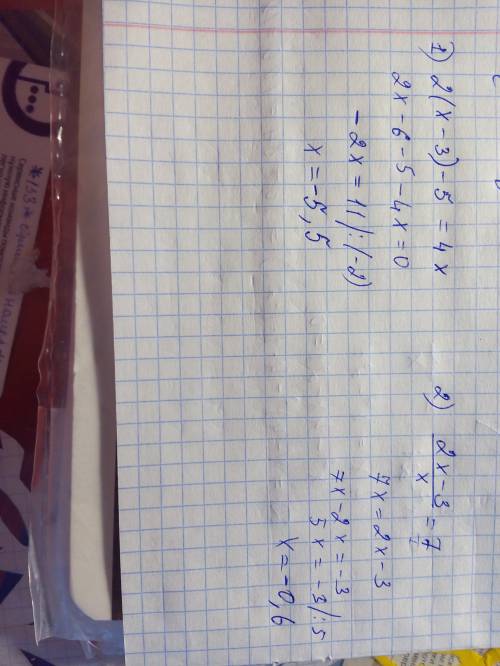 1) 2(x-3)-5 = 4x
2x-6-5-4x=0
-2x = 11|:(-2)
x = -5,5
2) \frac{2x-3}{x} = 7
7x = 2x-3
7x-2x = -3
5x = -3/:5
x = -0,6